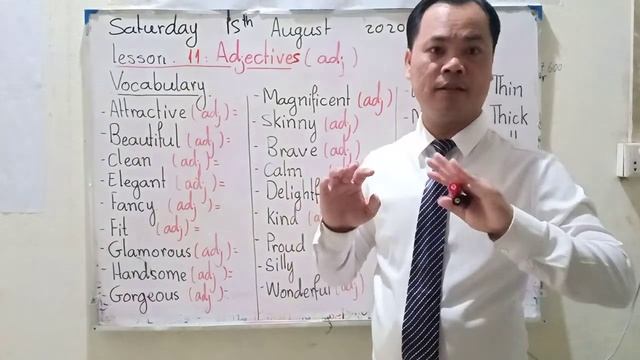 Saturday 15th August 2020
lesson. 11: Adjectives (adj)
Vocabulary
- Attractive (adj)=
- Beautiful (adj)=
- Clean (adj)=
- Elegant (adj)=
- Fancy (adj)=
- Fit (adj)=
- Glamorous (adj)=
- Handsome (adj)=
- Gorgeous (adj)=
- Magnificent (adj)
- Skinny (adj)
- Brave (adj)
- Calm
- Delightf
- Kind (a
- Proud
- Silly
- Wonderful (adj)
Thin
Thick